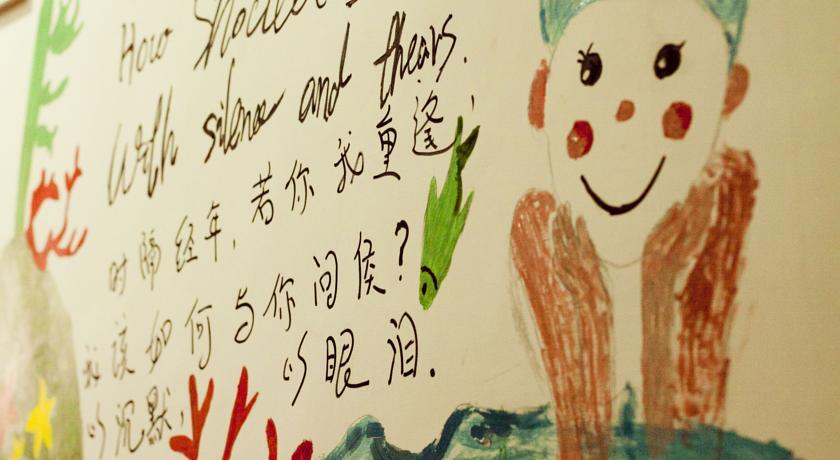 How Should
With silence and thears.
时隔经年,若你我重逢,
我该如何与你问候?
以沉默,以眼泪.